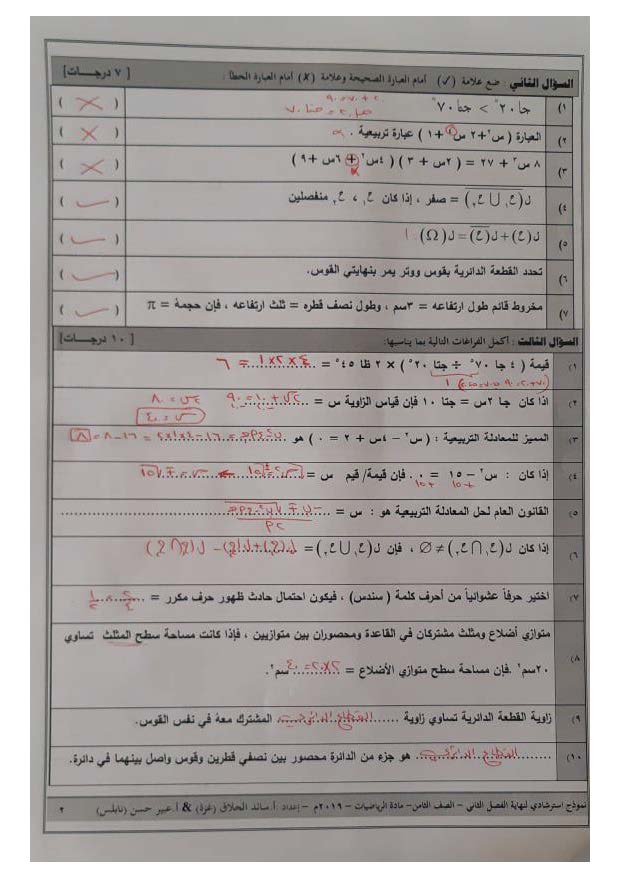 السؤال الثاني : ضع علامة (✓) أمام العبارة الصحيحة وعلامة (✗) أمام العبارة الخطأ : [ ٧ درجــات]
١) جا٢٠° > جتا ٧٠° ( ✗ )
٢) العبارة ( س٢+٢ س٤+١ ) عبارة تربيعية . ( ✗ )
٣) ٨ س٣ + ٢٧ = ( ٢س + ٣ ) ( ٤س٢ + ٦س +٩ ) ( ✗ )
٤) ل(ع١ ∪ ع٢) = صفر ، إذا كان ع١ ، ع٢ منفصلين ( ✓ )
٥) ل(ع) + ل(ع̅) = ل(Ω) ١ ( ✓ )
٦) تحدد القطعة الدائرية بقوس ووتر يمر بنهايتي القوس. ( ✓ )
٧) مخروط قائم طول ارتفاعه = ٣سم ، وطول نصف قطره = ثلث ارتفاعه ، فإن حجمة = π ( ✓ )
السؤال الثالث : أكمل الفراغات التالية بما يناسبها: [ ١٠ درجات ]
١) قيمة ( ٤ جا ٧٠° ÷ جتا ٢٠° ) × ٢ ظا ٤٥° = ٤×٢×١ = ٦
٢) اذا كان جا ٢س = جتا ١٠ فإن قياس الزاوية س = ٢س + ١٠ = ٩٠
٢س = ٨٠
س = ٤٠
٣) المميز للمعادلة التربيعية : ( س٢ – ٤س + ٢ = ٠ ) هو ب٢-٤أج = ١٦-٤×١×٢ = ١٦-٨ = ٨
٤) إذا كان : س٢ – ١٥ = ٠ فإن قيمة/ قيم س = س٢ = ١٥ س = ∓√١٥
+١٥ +١٥
٥) القانون العام لحل المعادلة التربيعية هو : س = -ب ∓ √ب٢-٤أج
٢أ
٦) إذا كان ل(ع١ ∩ ع٢) ≠ ∅ ، فإن ل(ع١ ∪ ع٢) = ل(ع١)+ل(ع٢) - ل(ع١∩ع٢)
٧) اختير حرفاً عشوائياً من أحرف كلمة ( سندس) ، فيكون احتمال حادث ظهور حرف مكرر = ٢/٤ = ١/٢
٨) متوازي أضلاع ومثلث مشتركان في القاعدة ومحصوران بين متوازيين ، فإذا كانت مساحة سطح المثلث تساوي
٢٠سم٢ .فإن مساحة سطح متوازي الأضلاع = ٢×٢٠=٤٠ سم٢.
٩) زاوية القطعة الدائرية تساوي زاوية القطاع الدائري المشترك معة في نفس القوس.
١٠) القطاع الدائري هو جزء من الدائرة محصور بين نصفي قطرين وقوس واصل بينهما في دائرة.
نموذج استرشادي لنهاية الفصل الثاني – الصف الثامن- مادة الرياضيات – ٢٠١٩م – إعداد : أ. سائد الحلاق (غزة) & أ. عبير حسن (نابلس) ٢